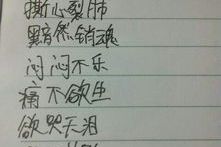 撕心裂肺
黯然销魂
闷闷不乐
痛不欲生
欲哭无泪